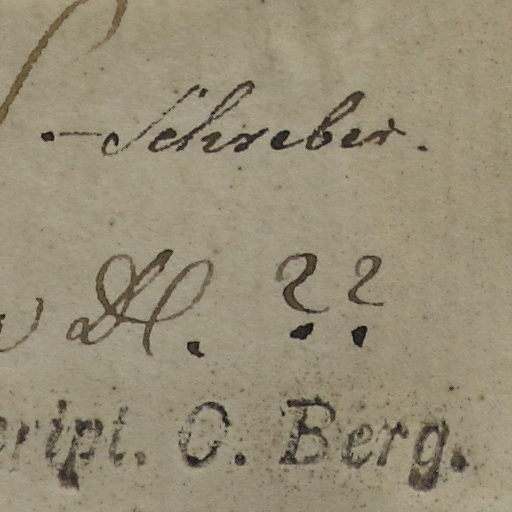 - Schreber.
??
cript. O. Berg.